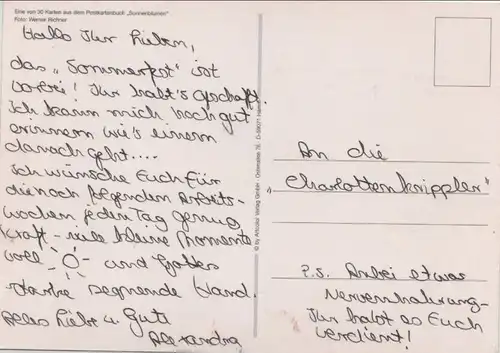 Eine von 30 Karten aus dem Postkartenbuch „Sonnenblumen“
Foto: Werner Richner
Hallo Ihr Lieben,
das „Sommerfest“ ist
vorbei! Ihr habt's geschafft.
Ich kann mich noch gut
erinnern wie's einem
danach geht....
Ich wünsche Euch für
die noch folgenden Arbeits-
wochen jeden Tag genug
Kraft - viele kleine Momente
voll und Gottes
starke segnende Hand.
Alles Liebe u. Gute
Alexandra
© by Artcolor Verlag GmbH
An die
„Charlottenknippler“
P.S. Anbei etwas
Nervennahrung-
Ihr habt es Euch
verdient!